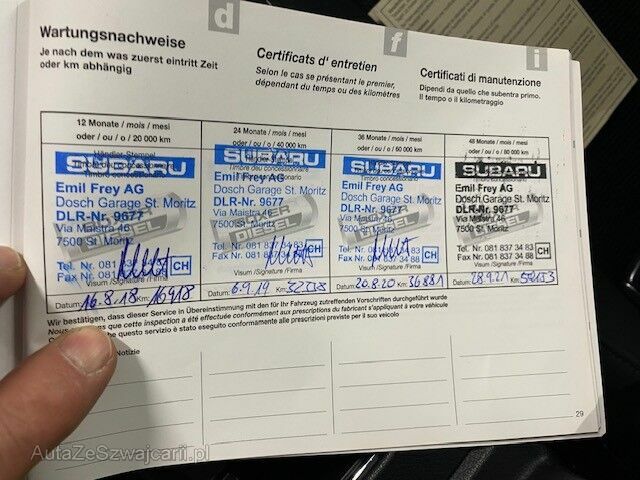 d
f
i
Wartungsnachweise
Je nach dem was zuerst eintritt Zeit
oder km abhängig
Certificats d' entretien
Selon le cas se présentant le premier,
dépendant du temps ou des kilomètres
Certificati di manutenzione
Dipendi da quello che subentra primo.
Il tempo o il kilometraggio
12 Monate / mois / mesi
oder / ou / o 20 000 km
24 Monate / mois / mesi
oder / ou / o / 40 000 km
36 Monate / mois / mesi
oder / ou / o / 60 000 km
48 Monate / mois / mesi
oder / ou / o / 80 000 km
SUBARU
Emil Frey AG
Dosch Garage St. Moritz
DLR-Nr. 9677
Via Maistra 46
7500 St. Moritz
Tel. Nr. 081 837
Fax Nr. 081
CH
Visum /Signature /Firma
Datum: 16.8.18 Km: 16918
SUBARU
Emil Frey AG
Dosch Garage St. Moritz
DLR-Nr. 9677
Via Maistra 46
7500 St. Moritz
Tel. Nr. 081 837 34 83
Fax Nr. 081
CH
Visum /Signature /Firma
Datum: 6.9.19 Km:
SUBARU
Emil Frey AG
Dosch Garage St. Moritz
DLR-Nr. 9677
Via Maistra 46
7500 St. Moritz
Tel. Nr. 081 837 34 83
Fax Nr. 081 837 34 88
CH
Visum /Signature /Firma
Datum: 26.8.20 Km: 36881
SUBARU
Emil Frey AG
Dosch Garage St. Moritz
DLR-Nr. 9677
Via Maistra 46
7500 St. Moritz
Tel. Nr. 081 837 34 83
Fax Nr. 081 837 34 88
CH
Visum /Signature /Firma
Datum: 28.9.21 Km:
SUPER DIESEL
SUPER DIESEL
SUPER DIESEL
SUPER DIESEL
Wir bestätigen, dass dieser Service in Übereinstimmung mit den für Ihr Fahrzeug zutreffenden Vorschriften durchgeführt wurde
Nous que cette inspection a été effectuée conformément aux prescriptions du fabricant s'appliquant à votre véhicule
che questo servizio è stato eseguito conformemente alle prescrizioni previste per il suo veicolo
Notizie
29
AutaZeSzwajcarii.pl